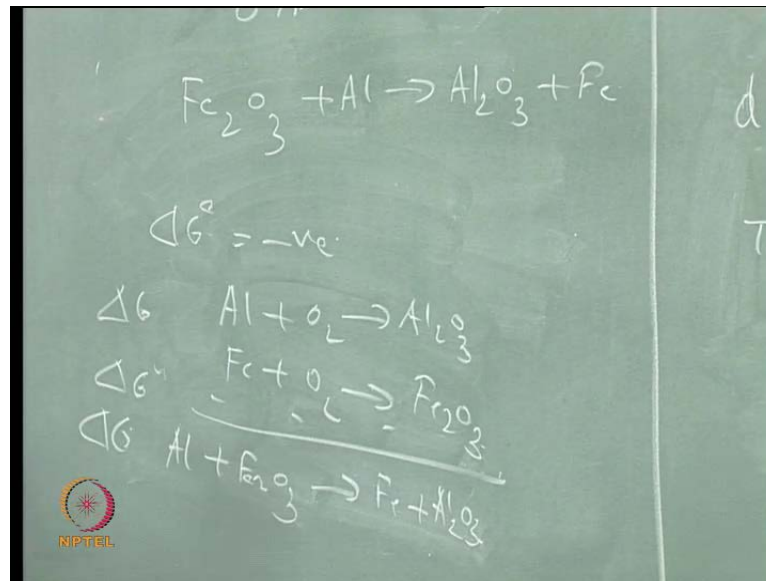 Fe₂O₃ + Al → Al₂O₃ + Fe
d
ΔG° = -ve
T
ΔG Al + O₂ → Al₂O₃
ΔG" Fe + O₂ → Fe₂O₃
ΔG Al + Fe₂O₃ → Fe + Al₂O₃
NPTEL